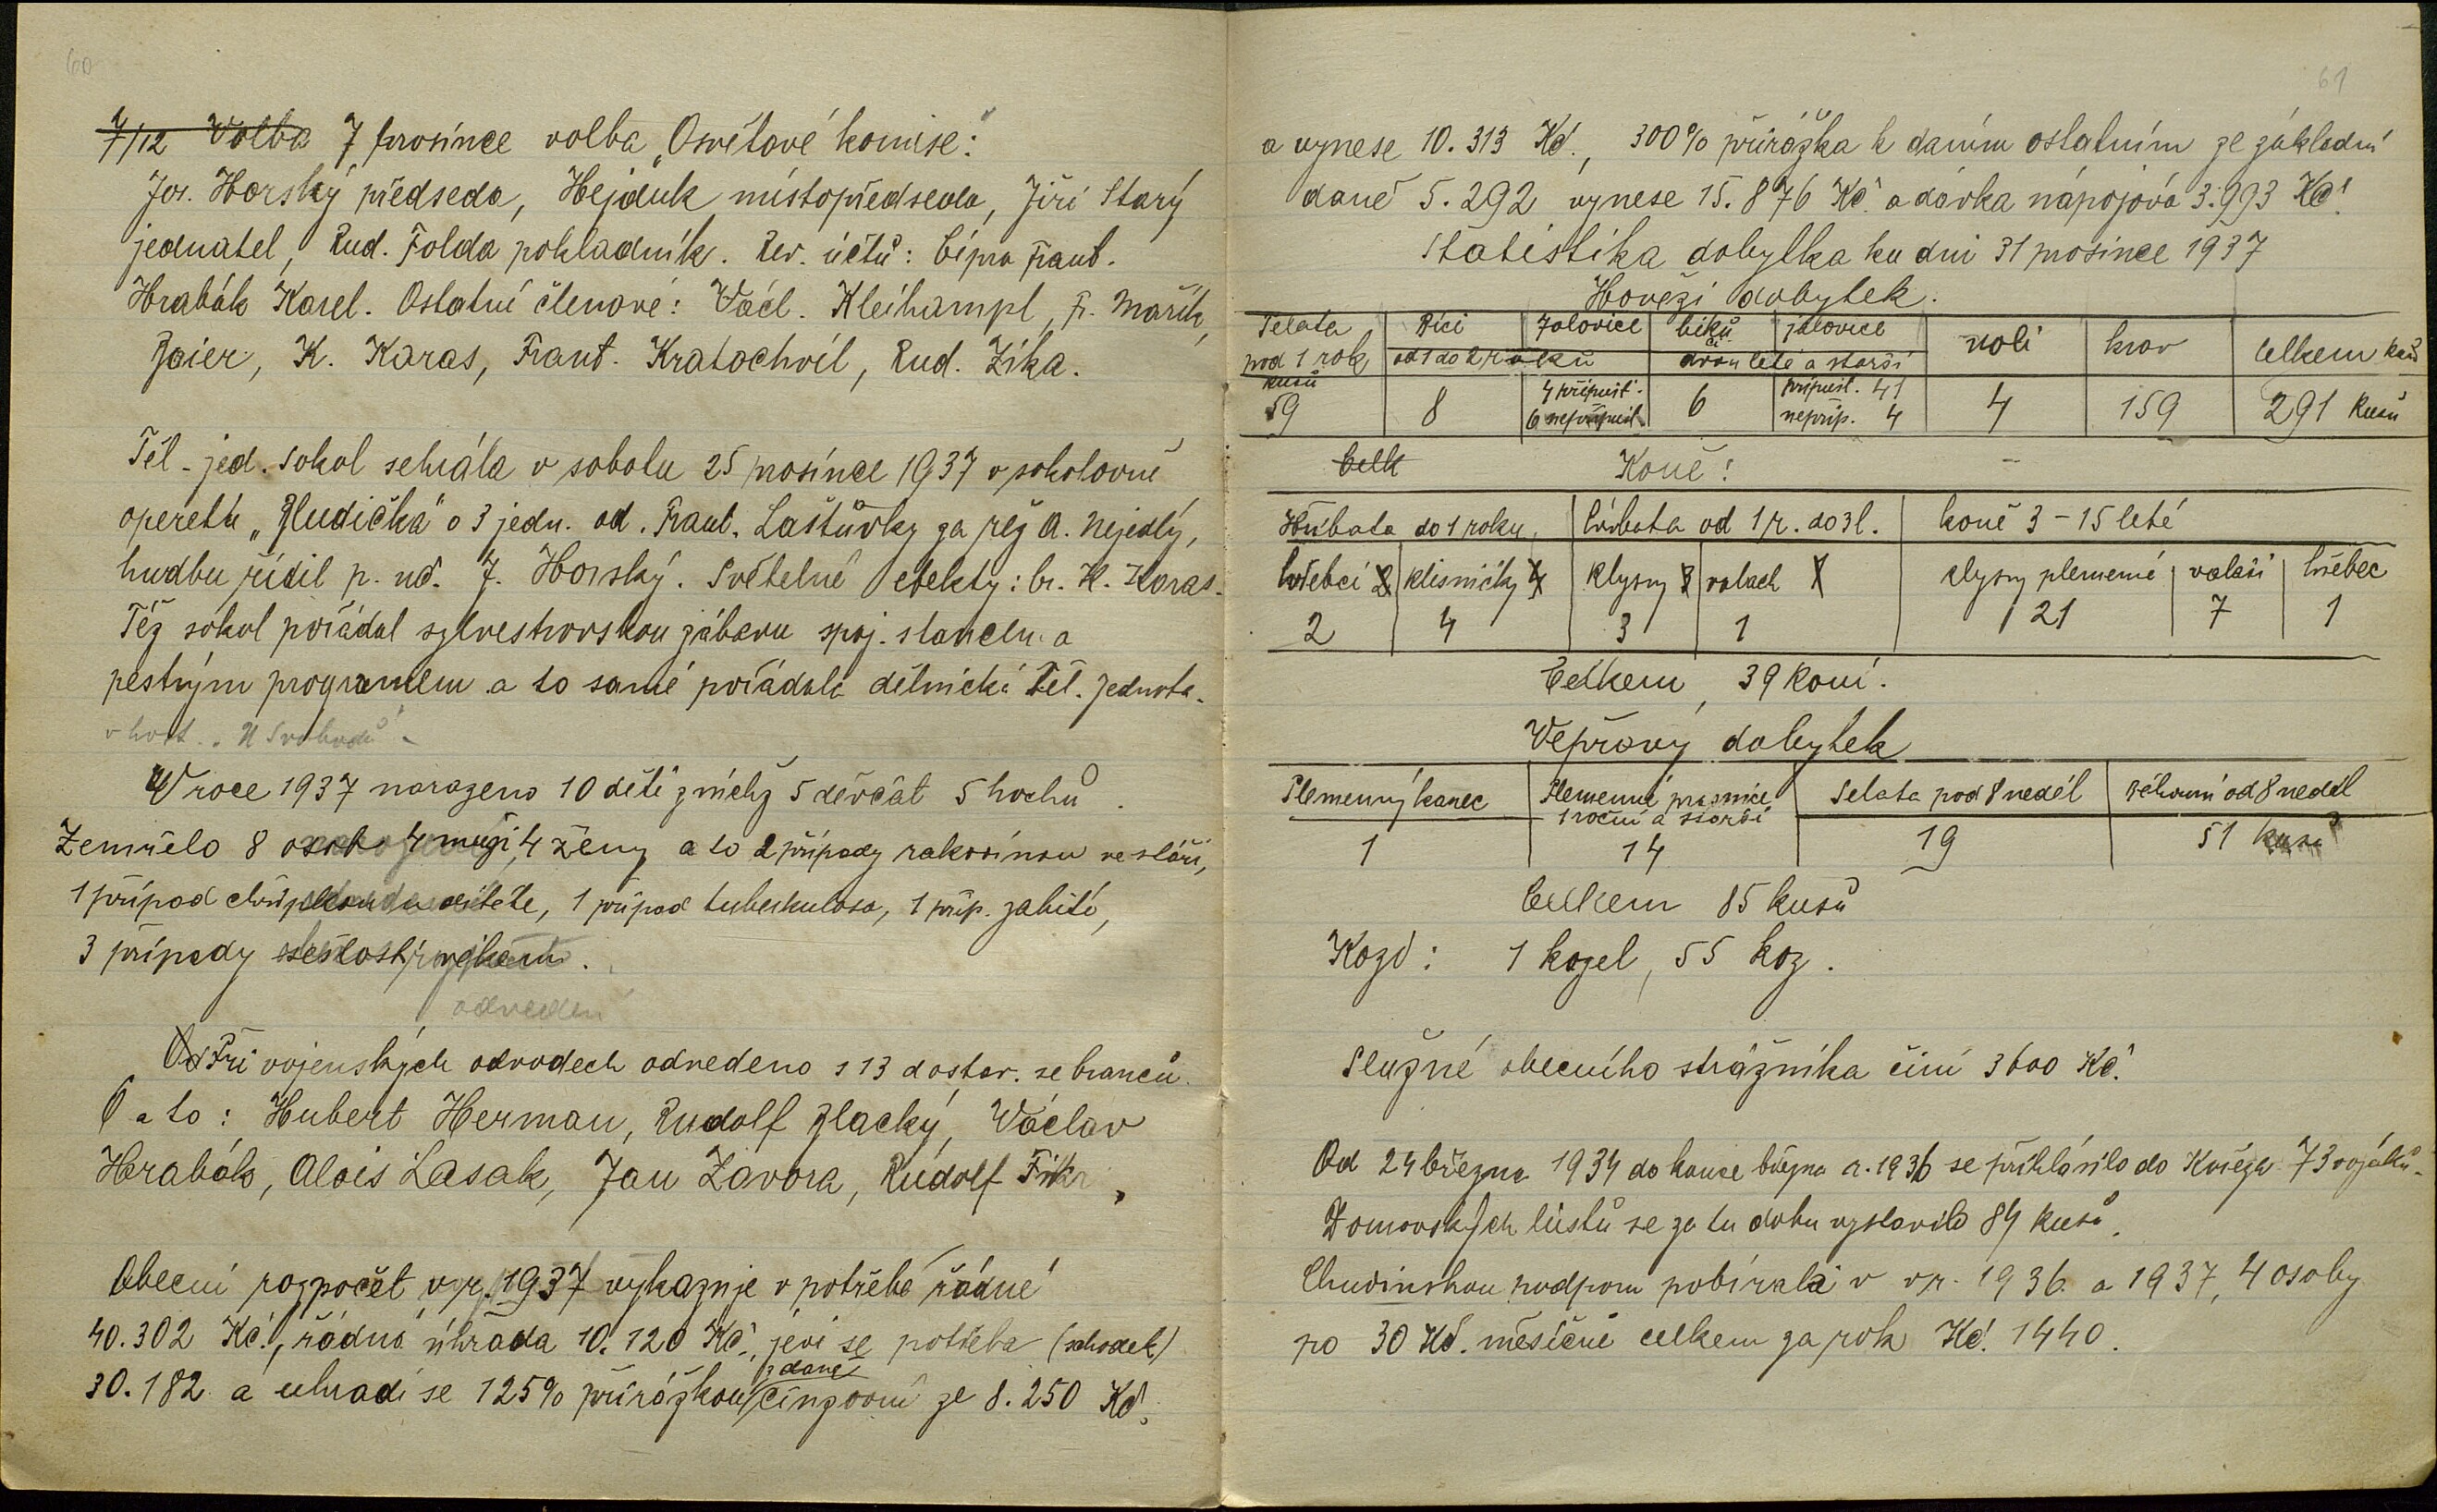 60
7/12 Volba 7 prosince volba „Osvětové komise:"
Jos. Horský předseda, Hejduk místopředseda, Jiří Starý
jednatel, Rud. Folda pokladník. Rev. účtů: Cípra Frant.
Hrabák Karel. Ostatní členové: Václ. Kleihampl, F. Mařík,
Zaier, K. Karas, Frant. Kratochvíl, Rud. Zíka.
Těl. jed. Sokol sehrála v sobotu 25 prosince 1937 v sokolovně
operetu „Zludička" o 3 jedn. od. Frant. Laštůvky za rež A. Nejedlý,
hudbu řídil p. uč. J. Horský. Světelné efekty: br. K. Karas.
Též sokol pořádal sylvestrovskou zábavu spoj. s tancem a
pestrým programem a to samé pořádala dělnická Těl. Jednota.
v host. „U Svobodů"
V roce 1937 narozeno 10 dětí z nichž 5 děvčat 5 hochů.
Zemřelo 8 osob 4 muži, 4 ženy a to 2 případy rakovinou ve stáří,
1 případ chřipkou u dítěte, 1 případ tuberkulosa, 1 příp. zabití,
3 případy sešlostí věkem.
odvedení
Od Při vojenských odvodech odvedeno s 13 dostav. se branců
6 a to: Hubert Herman, Rudolf Zlacký, Václav
Hrabák, Alois Lasak, Jan Závora, Rudolf Fikr,
Obecní rozpočet v r. 1937 vykazuje v potřebě řádné
40.302 Kč., řádná úhrada 10.120 Kč, jeví se potřeba (schodek)
z daně
30.182 a uhradí se 125% přirážkou činžovní ze 8.250 Kč.
61
a vynese 10.313 Kč., 300% přirážka k daním ostatním ze základní
daně 5.292 vynese 15.876 Kč. a dávka nápojová 3.993 Kč.
Statistika dobytka ku dni 31 prosince 1937
Hovězí dobytek.
Telata Bíci Jalovice bíků či jalovice voli krav celkem kusů
pod 1 rok od 1 do 2 roků dvou leté a starší
kusů 4 připust. připust. 41
59 8 6 nepřipust. 6 nepřip. 4 4 159 291 kusů
Celk Koně:
Hříbata do 1 roku, hříbata od 1 r. do 3 l. koně 3 – 15 leté
hřebci 2 klisničky 4 klysny 3 valach 1 klysny plemené valaši hřebec
2 4 3 1 21 7 1
Celkem, 39 koní.
Vepřový dobytek
Plemenný kanec Plemenné prasnice Selata pod 8 neděl od 8 neděl
1 roční a starší
1 14 19 51 kusů
Celkem 85 kusů
Kozy: 1 kozel, 55 koz.
Služné obecního strážníka činí 3600 Kč.
Od 24 března 1934 do konce března r. 1936 se přihlásilo do Kněze 73 vojáků.
Domovských listů se za tu dobu vystavilo 84 kusů.
Chudinskou podporu pobírala v r. 1936 a 1937, 4 osoby
po 30 Kč. měsíčně celkem za rok Kč. 1440.